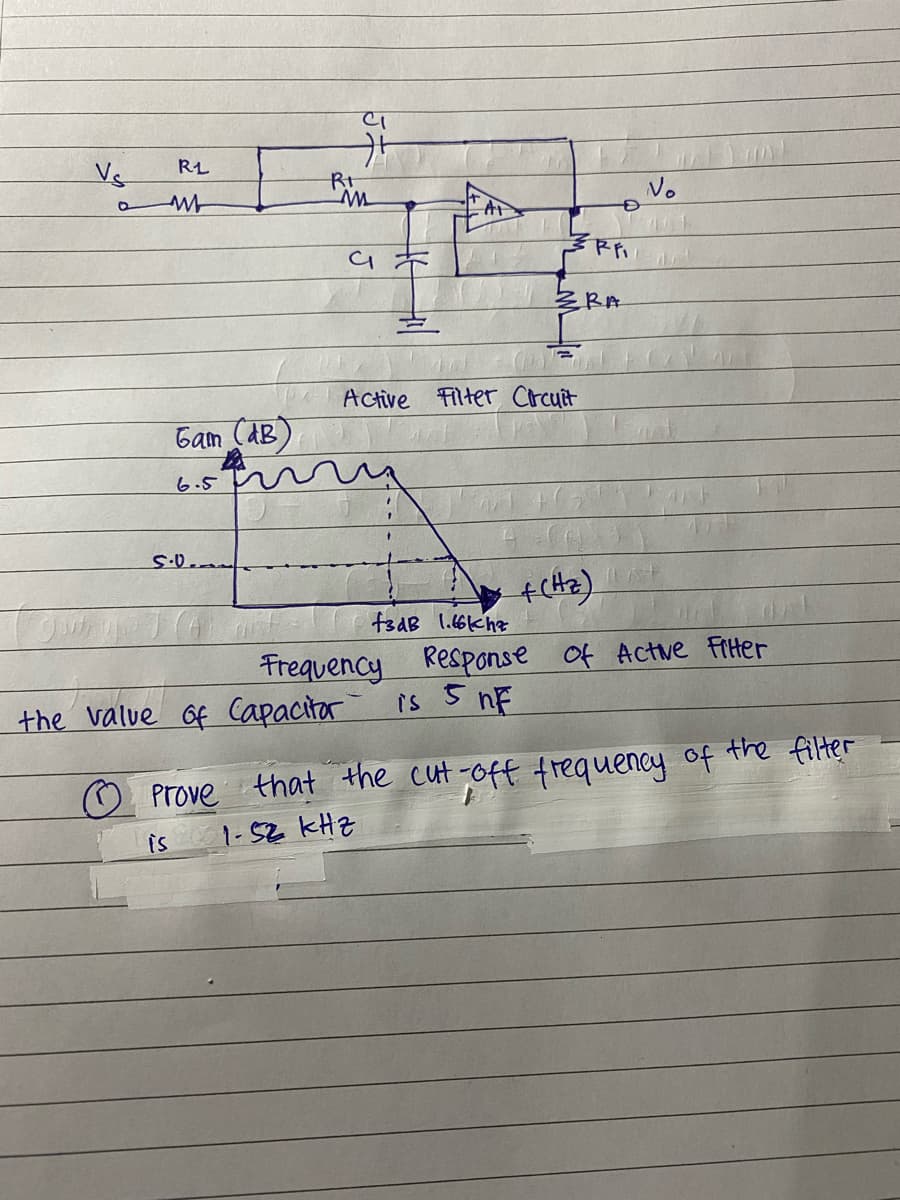 C1
Vs R1
R1
+
- A1
Vo
C1
RF1
RA
Active Filter Circuit
Gain (dB)
6.5
5.0
f(Hz)
f3dB 1.66khz
Frequency Response of Active Filter
the value of Capacitor is 5 nF
① Prove that the cut-off frequency of the filter
is 1.52 kHz